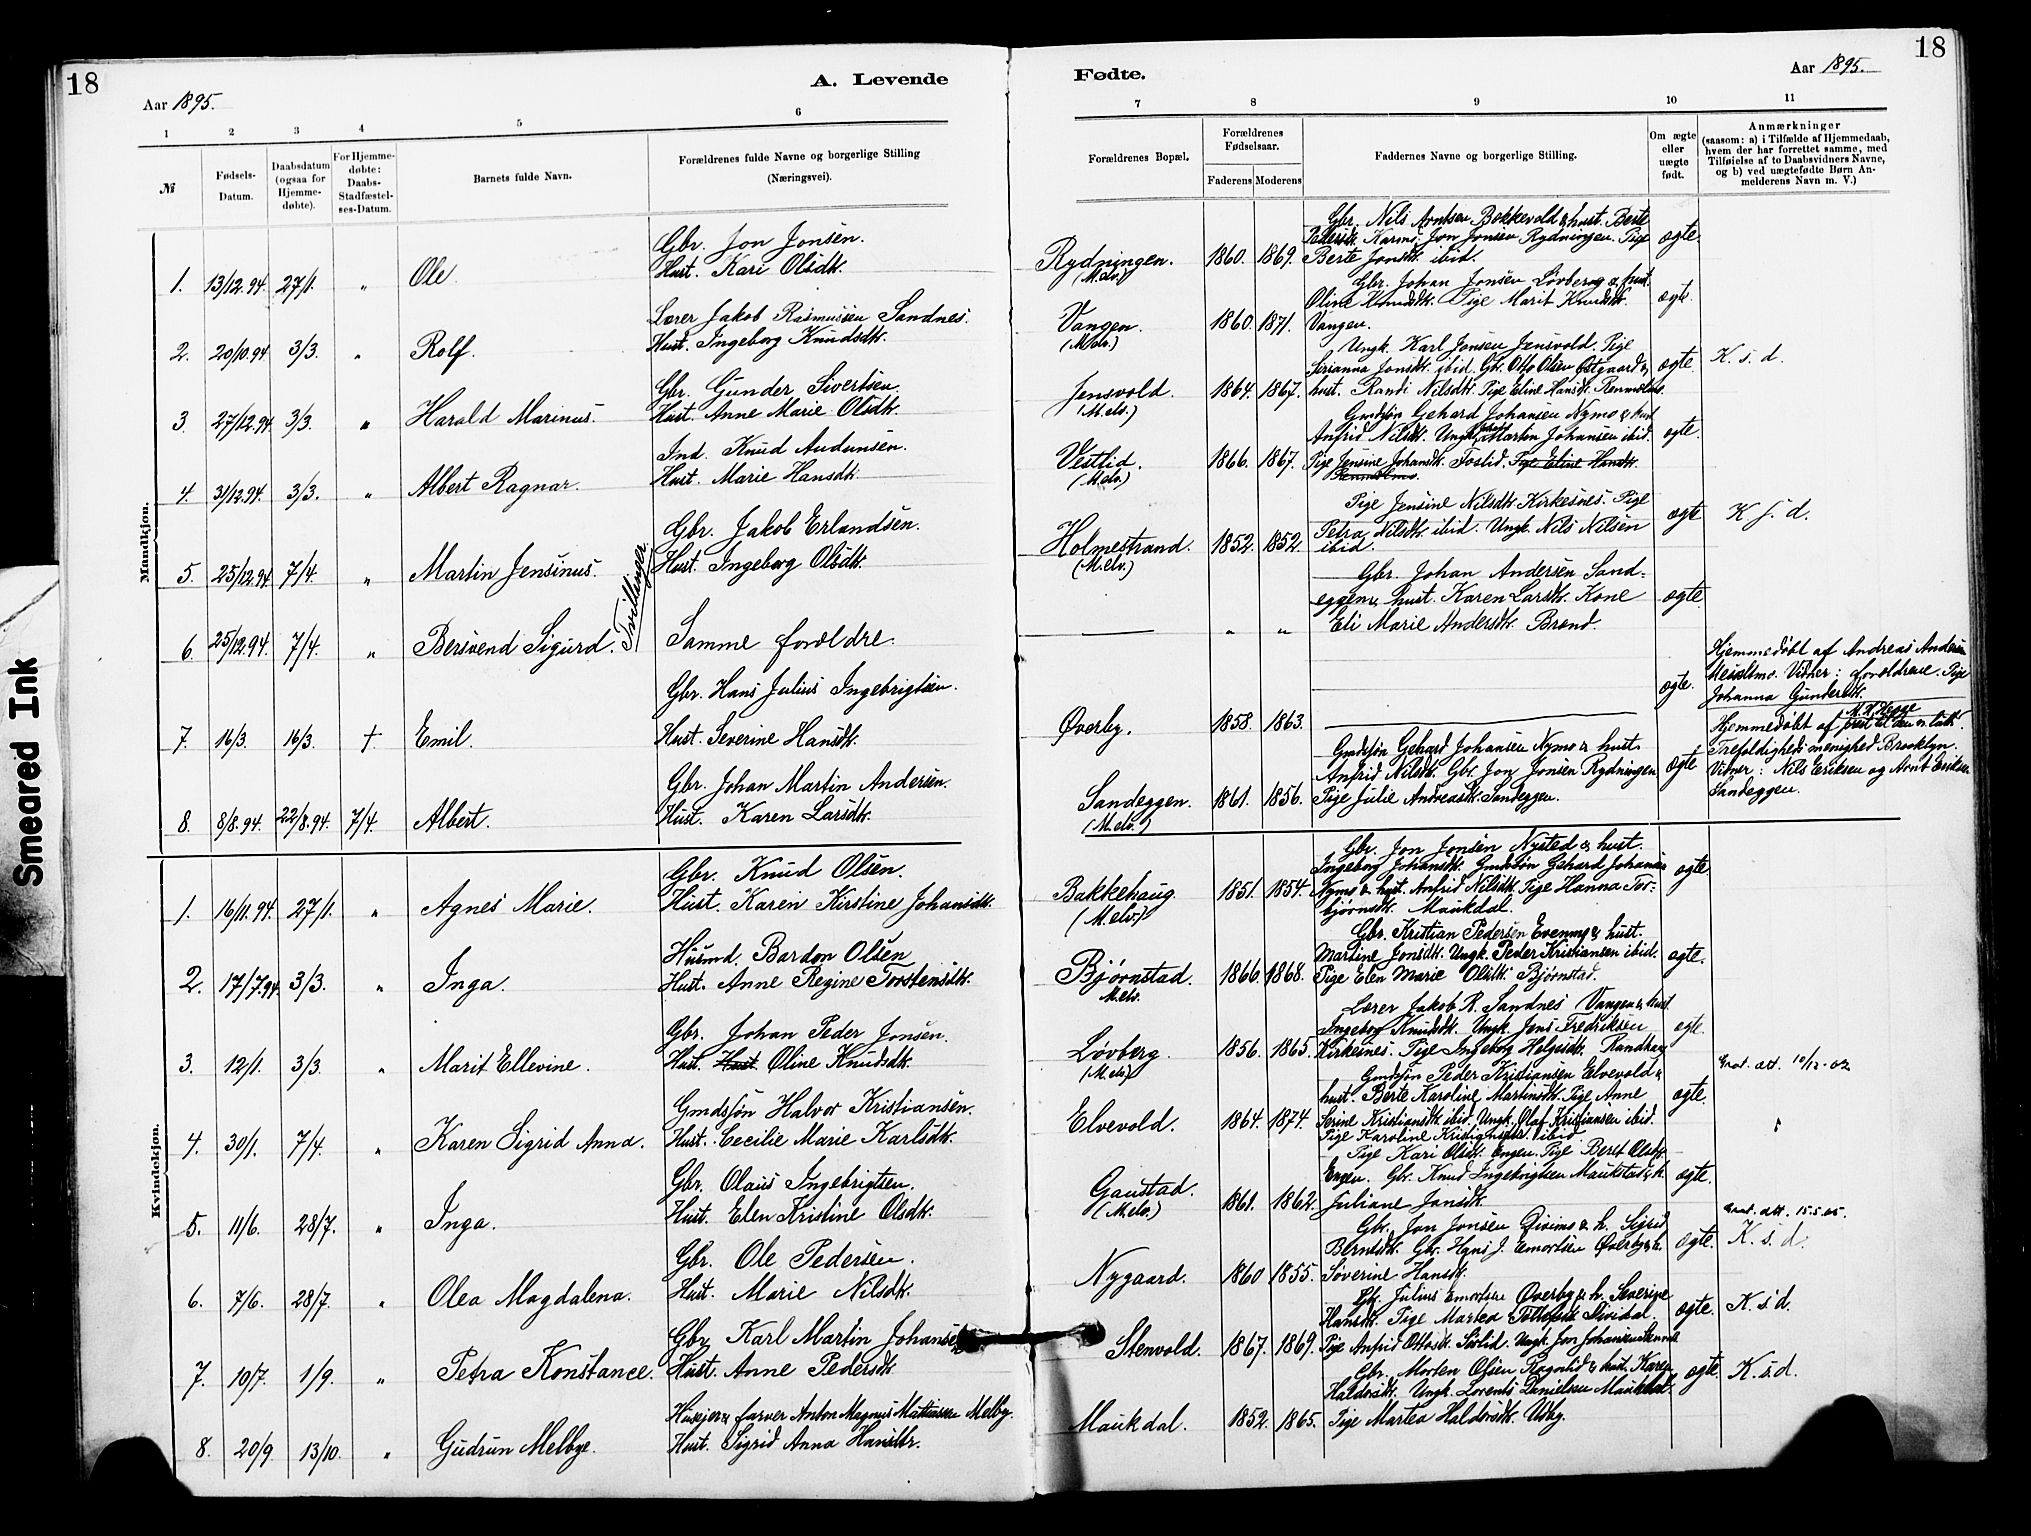 18
A. Levende
Aar 1895.
1
2
3
4
5
6
№
Fødsels-
Datum.
Daabsdatum
(ogsaa for
Hjemme-
døbte).
For Hjemme-
døbte:
Daabs-
Stadfæstel-
ses-Datum.
Barnets fulde Navn.
Forældrenes fulde Navne og borgerlige Stilling
(Næringsvei).
Mandkjøn.
Gbr. Jon Jonsen.
1. 13/12.94 27/1. " Ole. Hust. Kari Olsdtr.
Lærer Jakob Rasmussen Sandnes.
2. 20/10.94 3/3. " Rolf. Hust. Ingeborg Knudsdtr.
Gbr. Gunder Sivertsen.
3. 27/12.94 3/3. " Harald Marinus. Hust. Anne Marie Olsdtr.
Ind. Knud Audunsen.
4. 31/12.94. 3/3. " Albert Ragnar. Hust. Marie Hansdtr.
Gbr. Jakob Erlandsen.
5. 25/12.94 7/4. " Martin Jensinus. Hust. Ingeborg Olsdtr.
Tvillinger
6. 25/12.94. 7/4. " Bersvend Sigurd. Samme forældre.
Gbr. Hans Julius Ingebrigtsen.
7. 16/3. 16/3. † Emil. Hust. Severine Hansdtr.
Gbr. Johan Martin Andersen.
8. 8/8.94. 22/8.94. 7/4. Albert. Hust. Karen Larsdtr.
Kvindekjøn.
Gbr. Knud Olsen.
1. 16/11.94. 27/1. " Agnes Marie. Hust. Karen Kirstine Johansdtr.
Husmd. Bardon Olsen
2. 17/7.94 3/3. " Inga. Hust. Anne Regine Torstensdtr.
Gbr. Johan Peder Jonsen.
3. 12/1. 3/3. " Marit Ellevine. Hust. Hust. Oline Knudsdtr.
Gmdssøn Halvor Kristiansen.
4. 30/1. 7/4. " Karen Sigrid Anna. Hust. Cecilie Marie Karlsdtr.
Gbr. Olaus Ingebrigtsen.
5. 11/6. 28/7. " Inga. Hust. Elen Kristine Olsdtr.
Gbr. Ole Pedersen.
6. 7/6. 28/7. " Olea Magdalena. Hust. Marie Nilsdtr.
Gbr. Karl Martin Johansen
7. 10/7. 1/9. " Petra Konstance. Hust. Anne Pedersdtr.
Huseier & farver Anton Magnus Mathiassen Melby.
8. 20/9 13/10. " Gudrun Melbye. Hust. Sigrid Anna Hansdtr.
18
Fødte.
Aar 1895.
7
8
9
10
11
Forældrenes Bopæl.
Forældrenes
Fødselsaar.
Faderens Moderens
Faddernes Navne og borgerlige Stilling.
Om ægte
eller
uægte
født.
Anmærkninger
(saasom: a) i Tilfælde af Hjemmedaab,
hvem der har forrettet samme, med
Tilføielse af to Daabsvidners Navne,
og b) ved uægtefødte Børn An-
melderens Navn m. V.)
Gbr. Nils Arntsen Bakkevold & hust. Berte
Pedersdtr. Karmo, Jon Jonsen Rydningen. Pige ægte.
Rydningen. 1860. 1869. Berte Jonsdtr. ibid.
(M.elv.)
Gbr. Johan Jonsen Løvberg & hust.
Oline Knudsdtr. Pige Marit Knudsdtr. ægte.
Vangen. 1860. 1871. Vangen.
(M.elv.)
Ungk. Karl Jonsen Jensvold. Pige
Serianna Jonsdtr. ibid. Gbr. Otto Olsen Østgaard & ægte. K. s. d.
Jensvold. 1864. 1867. hust. Randi Nilsdtr. Pige Eline Hansdtr.
(M.elv.)
Gmdssøn Gehard Johansen Nymo & hust
Anfrid Nilsdtr. Ungk. Martin Johansen ibid. ægte.
Vestlid. 1866. 1867. Pige Jensine Johansdtr. Foslid. Pige Eline Hansdtr.
(M.elv.)
Pige Jensine Nilsdtr. Kirkesnes. Pige
Petra Nilsdtr. ibid. Ungk. Nils Nilsen ægte K. s. d.
Holmestrand. 1852. 1852. ibid.
(M.elv.)
Gbr. Johan Andersen Sand-
eggen & hust. Karen Larsdtr. Kone ægte
" " Eli Marie Andersdtr. Brend.
ægte. Hjemmedøbt af Andreas Andersen
Vidner: forældrene. Pige
Johanna Gundersdtr.
Øverby. 1858. 1863.
Gmdssøn Gehard Johansen Nymo & hust.
Anfrid Nilsdtr. Gbr. Jon Jonsen Rydningen ægte
Sandeggen. 1861. 1856. Pige Julie Andreasdtr. Sandeggen.
(M.elv.)
Hjemmedøbt af M. H. Hegge
prest til den n. luth.
Trefoldigheds menighed Brooklyn.
Vidner: Nils Eriksen og Arnt Eriksen
Sandeggen.
Gbr. Jon Jonsen Nysted & hust.
Ingeborg Johansdtr. Gmdssøn Gehard Johansen ægte
Bakkehaug 1851. 1854. Nymo & hust. Anfrid Nilsdtr. Pige Hanna Tor-
(M.elv.) bjørnsdtr. Maukdal.
Gbr. Kristian Pedersen Evenmo & hust.
Martine Jonsdtr. Ungk. Peder Kristiansen ibid. ægte.
Bjørnstad. 1866. 1868. Pige Elen Marie Olsdtr. Bjørnstad.
M.elv.
Lærer Jakob R. Sandnes Vangen & hust
Ingeborg Knudsdtr. Ungk. Jens Fredriksen ægte.
Løvberg. 1856. 1865. Kirkesnes. Pige Ingeborg Helgesdtr. Randhaug
(M.elv.)
Grat. att. 10/12-02
Gmdssøn Peder Kristiansen Elvevold &
hust. Berte Karoline Martinsdtr. Pige Anne ægte.
Elvevold. 1864. 1874. Serine Kristiansdtr. ibid. Ungk. Olaf Kristiansen ibid.
Pige Karoline Kristiansdtr. ibid
Pige Kari Olsdtr. Engen. Pige Beret Olsdtr.
Engen. Gbr. Knud Ingebrigtsen Maukstad & h. ægte.
Gaustad. 1861. 1862. Juliane Jonsdtr.
(M.elv.)
Grat. att. 15.5.05.
Gbr. Jon Jonsen & h. Sigrid
Berntsdtr. Gbr. Hans J. Emortsen Øverby & h. ægte. K. s. d.
Nygaard. 1860 1855. Severine Hansdtr.
Gbr. Julius Emortsen Øverby & h. Severine
Hansdtr. Pige Martea Dividal. ægte. K. s. d.
Stenvold. 1867. 1869. Pige Anfrid Ottosdtr. Sørlid. Ungk. Jon Johansen
Gbr. Morten Olsen Rognlid & hust. Karen
Haldorsdtr. Ungk. Lorents Danielsen Maukdal. ægte K. s. d.
Maukdal. 1852. 1865. Pige Martea Haldorsdtr. Udby.
Smeared Ink